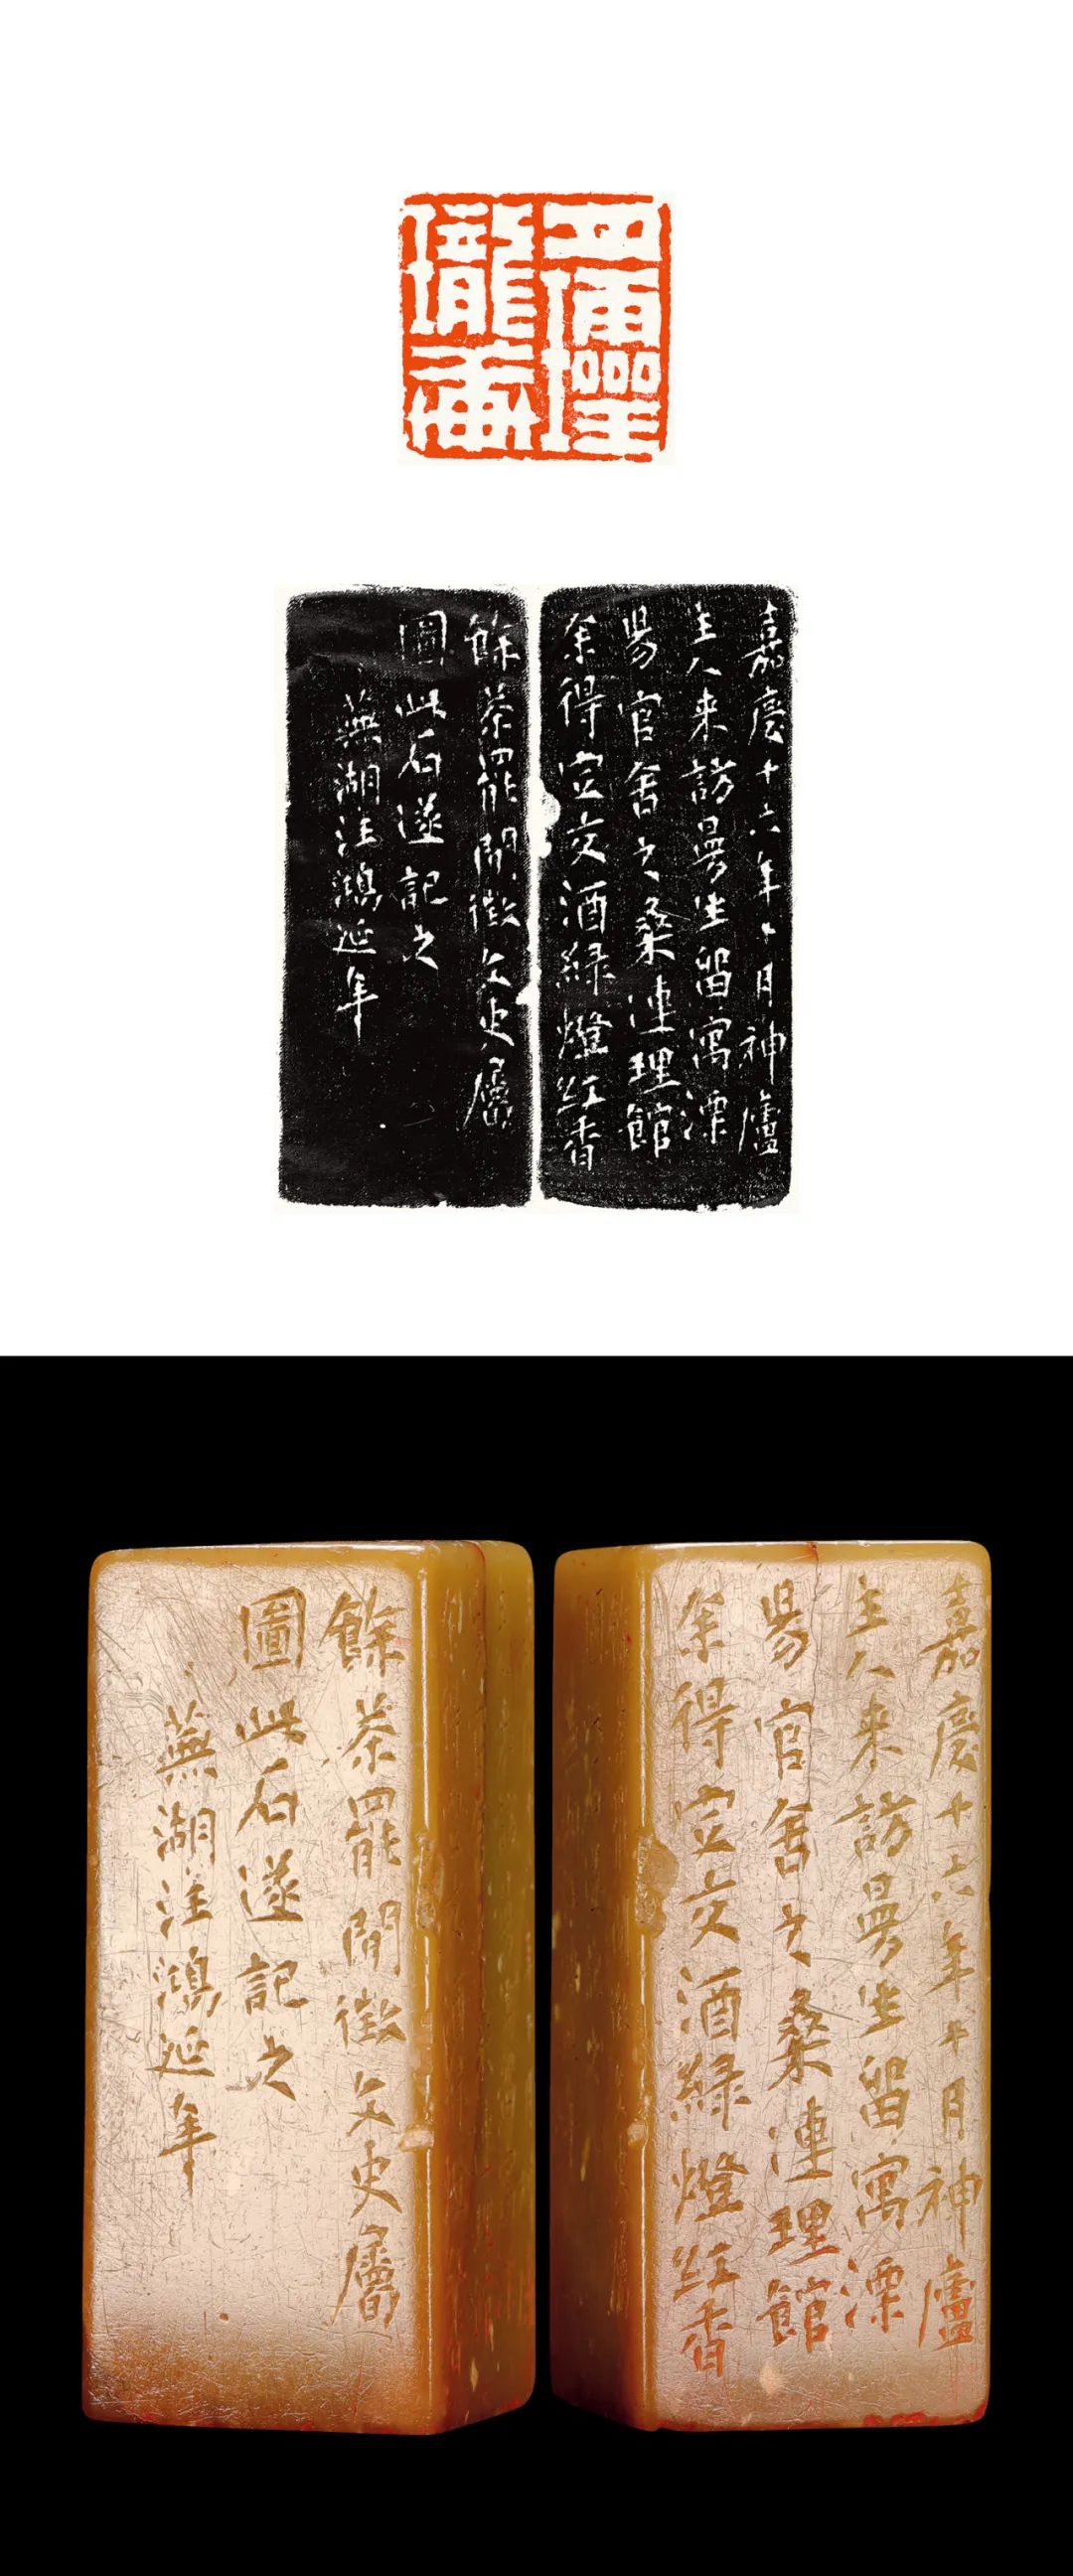 嘉慶十六年十月神廬
主人來訪曼生留寓溧
昜官舍之桑連理館
余得定交酒綠燈紅香
餘茶罷閒徵文史屬
圖此石遂記之
蕪湖汪鴻延年
嘉慶十六年十月神廬
主人來訪曼生留寓溧
昜官舍之桑連理館
余得定交酒綠燈紅香
餘茶罷閒徵文史屬
圖此石遂記之
蕪湖汪鴻延年